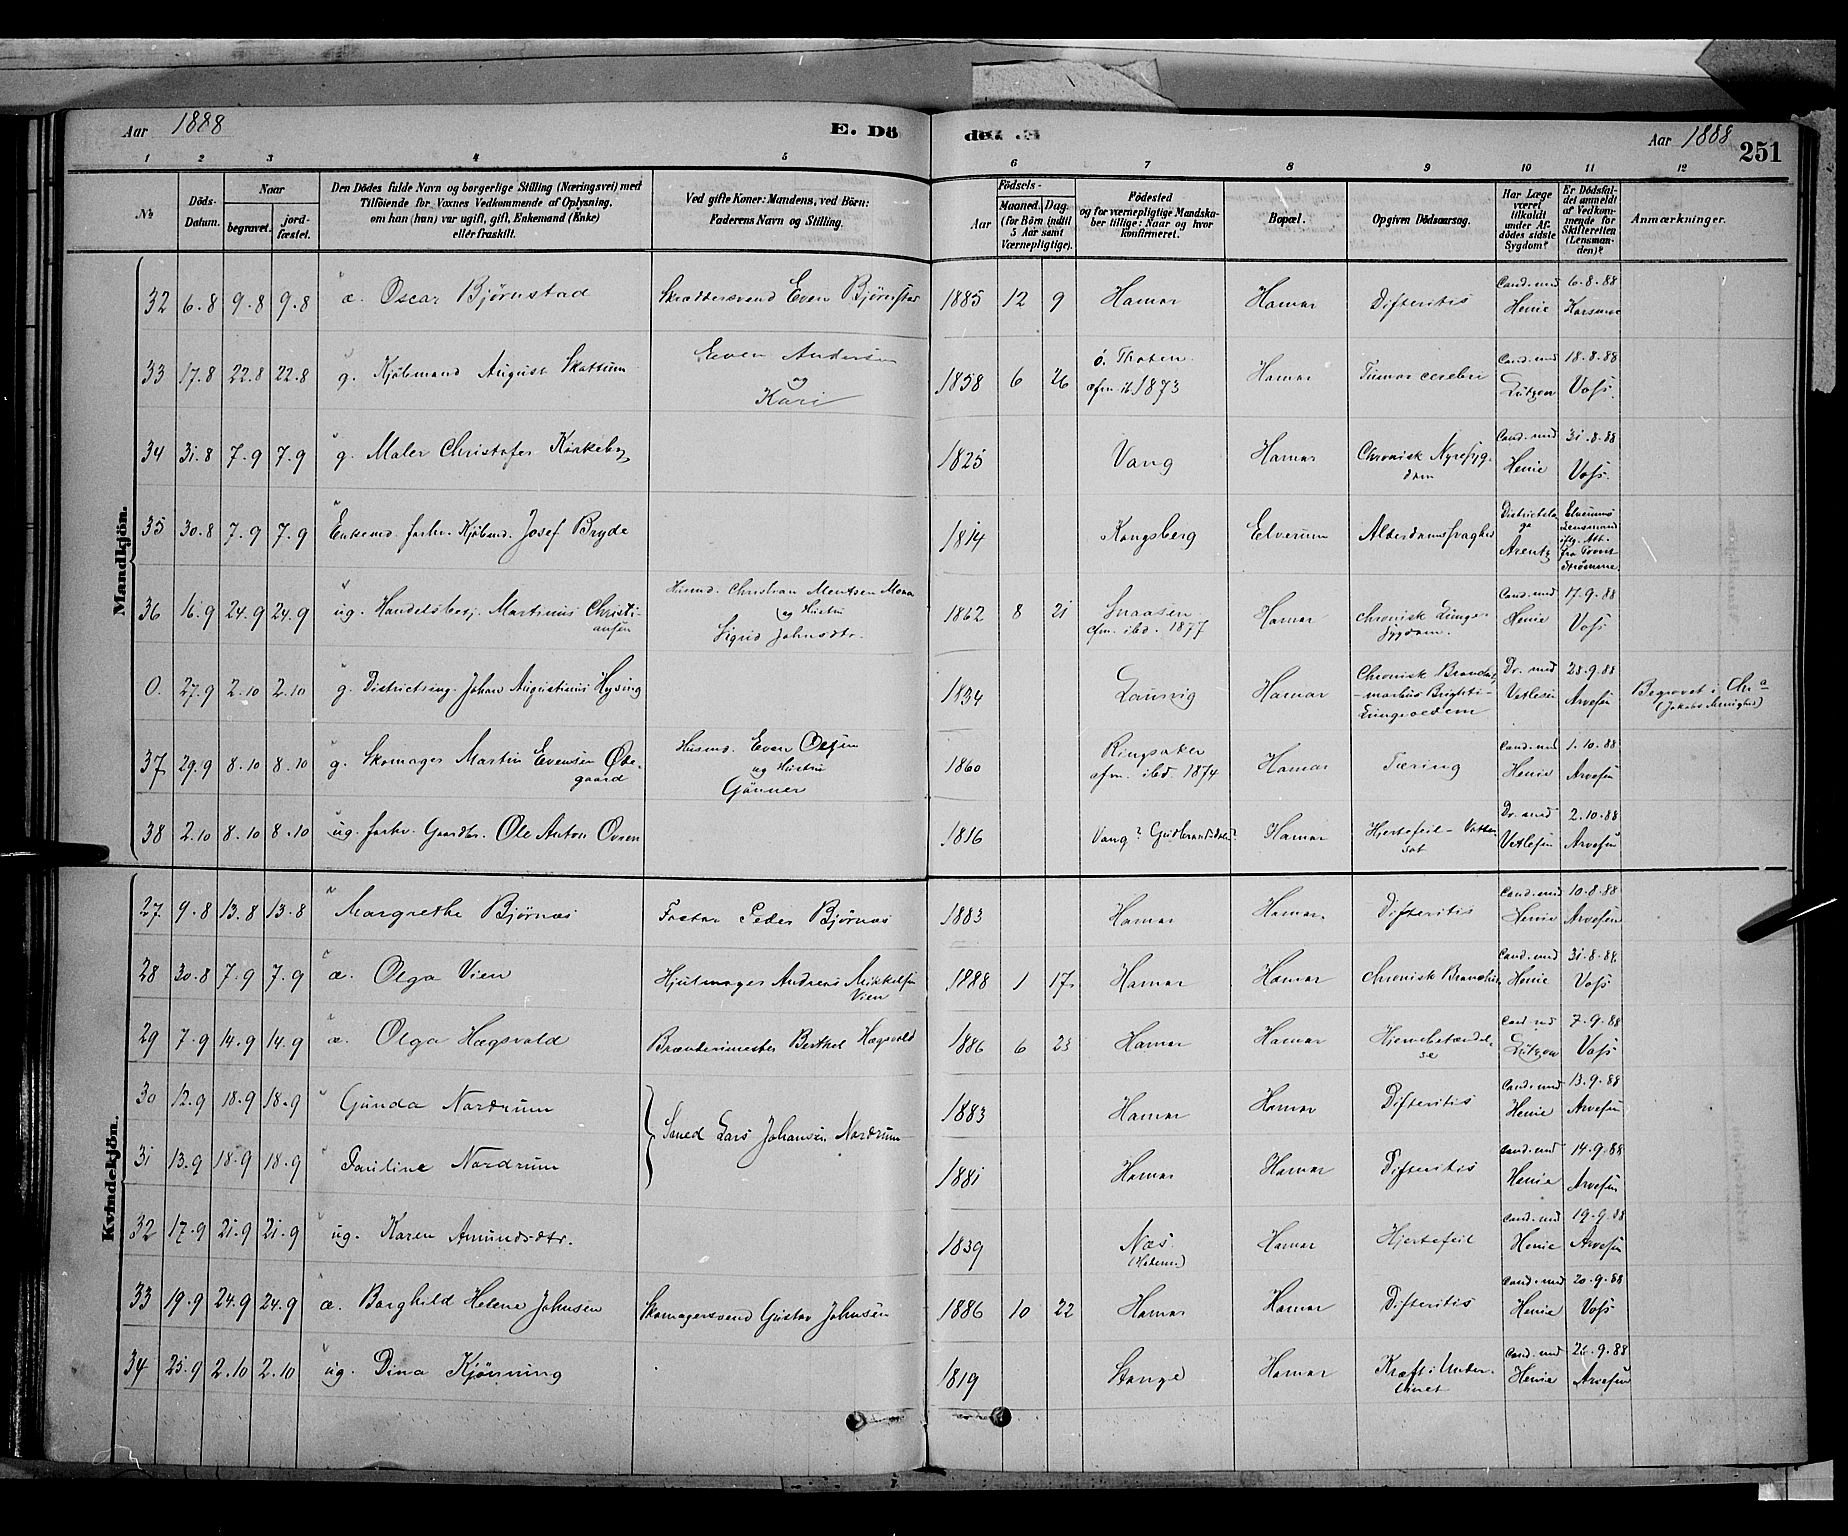 Aar 1888
E. Dö
de .E
Aar 1888
251
1 2 3 4 5 6 7 8 9 10 11 12
No
Döds-Datum.
Naar
begravet.
jord-fæstet.
Den Dödes fulde Navn og borgerlige Stilling (Næringsvei) med
Tilföiende för Voxnes Vedkommende af Oplysning,
om han (hun) var ugift, gift, Enkemand (Enke)
eller fraskilt.
Ved gifte Koner: Mandens, ved Börn:
Faderens Navn og Stilling.
Födsels-
Aar
Maaned. Dag.
(for Börn indtil
5 Aar samt
Værnepligtige).
Födested
og for værnepligtige Mandska-
ber tillige: Naar og hvor
konfirmeret.
Bopæl.
Opgiven Dödsaarsag.
Har Læge
været
tilkaldt
under Af-
dödes sidste
Sygdom?
Er Dödsfal-
det anmeldt
af Vedkom-
mende for
Skifteretten
(Lensman-
den)?
Anmærkninger.
Mandkjön.
32 6.8 9.8 9.8 æ. Oscar Bjørnstad Skræddersvend Even Bjørnstad 1885 12 9 Hamar Hamar Difteritis Cand. med Henie 6.8.88
33 17.8 22.8 22.8 g. Kjøbmand August Skattum Even Andersen og Kari 1858 6 26 ö. Thoten cfm. ib 1873 Hamar Tumor cerebri Cand. med Lützow 18.8.88 Voss.
34 31.8 7.9 7.9 g. Maler Christofer Kirkeby 1825 Vang Hamar Chronisk Nyresygdom Cand. med Henie 31.8.88 Voss.
35 30.8 7.9 7.9 Enkemd. forhv. Kjøbmd. Josef Bryde 1814 Kongsberg Elverum Alderdomssvaghed Districtslæge Arentz Elverums Lensmand iflg. Att. fra Provst Strømme
36 16.9 24.9 24.9 ug. Handelsbetj. Martinus Christiansen Husmd. Christian Mentsen Moen og Hustru Sigrid Johnsdtr. 1862 8 21 Snaasen cfm. ibd. 1877 Hamar chronisk Lungesygdom. Cand. med Henie 17.9.88 Voss
0. 27.9 2.10 2.10 g. Districtsing. Johan Augustinus Hysing 1834 Laurvig Hamar Chronisk Morbus Brighti - Lungeoedem Dr. med Vetlesen 28.9.88 Arvesen Begravet i Chr.a (Jakobs Menighed)
37 29.9 8.10 8.10 g. Skomager Martin Evensen Ødegaard Husmd. Even Olsen og Hustru Gønner 1860 Ringsaker cfm. ibd 1874 Hamar Tæring Cand. med Henie 1.10.88 Arvesen
38 2.10 8.10 8.10 ug. forhv. Gaardbr. Ole Anton Ovren 1816 Vang? Gudbrandsdalen? Hamar Hjertefeil - Vattersot Dr. med Vetlesen 2.10.88 Arvesen
Kvindekjön.
27 9.8 13.8 13.8 Margrethe Bjørnæs Peder Bjørnæs 1883 Hamar Hamar. Difteritis Cand. med Henie 10.8.88 Arvesen
28 30.8 7.9 7.9 æ. Olga Vien Hjulmager Andreas Mikkelsen Vien 1888 1 17 Hamar Hamar Chronisk Cand. med Henie 31.8.88 Voss
29 7.9 14.9 14.9 æ. Olga Hægsvold Brænderimester Berthel Hægsvold 1886 6 23 Hamar Hamar Hjernebetændelse Cand. md Lützow 7.9.88 Voss
30 12.9 18.9 18.9 Gunda Nordrum Smed Lars Johansen Nordrum 1883 Hamar Hamar Difteritis Cand. med Henie 13.9.88 Arvesen
31 13.9 18.9 18.9 Pauline Nordrum 1881 Hamar Hamar Difteritis Cand. md Henie 14.9.88 Arvesen
32 17.9 21.9 21.9 ug. Karen Amundsdtr. 1839 Næs. (Hedem.) Hamar Hjertefeil Cand. med Henie 19.9.88 Arvesen
33 19.9 24.9 24.9 æ. Borghild Helene Johnsen Skomagersvend Gustav Johnsen 1886 10 22 Hamar Hamar Difteritis Cand. med Henie 20.9.88 Voss
34 25.9 2.10 2.10 ug. Dina Kjønning 1819 Stange Hamar Kræft i Underlivet Cand. md Henie 26.9.88 Arvesen